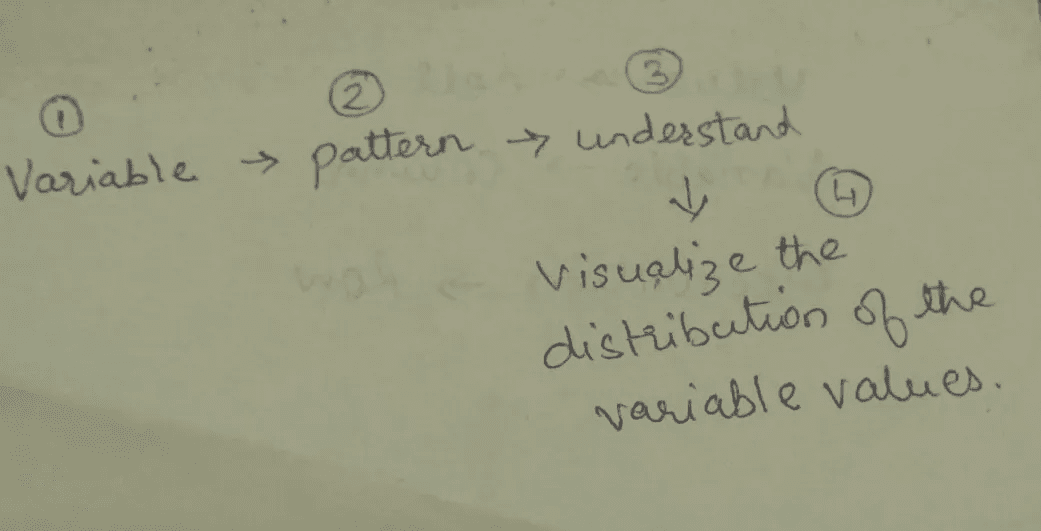 ① ② ③
Variable → pattern → understand
↓ ④
visualize the
distribution of the
variable values.